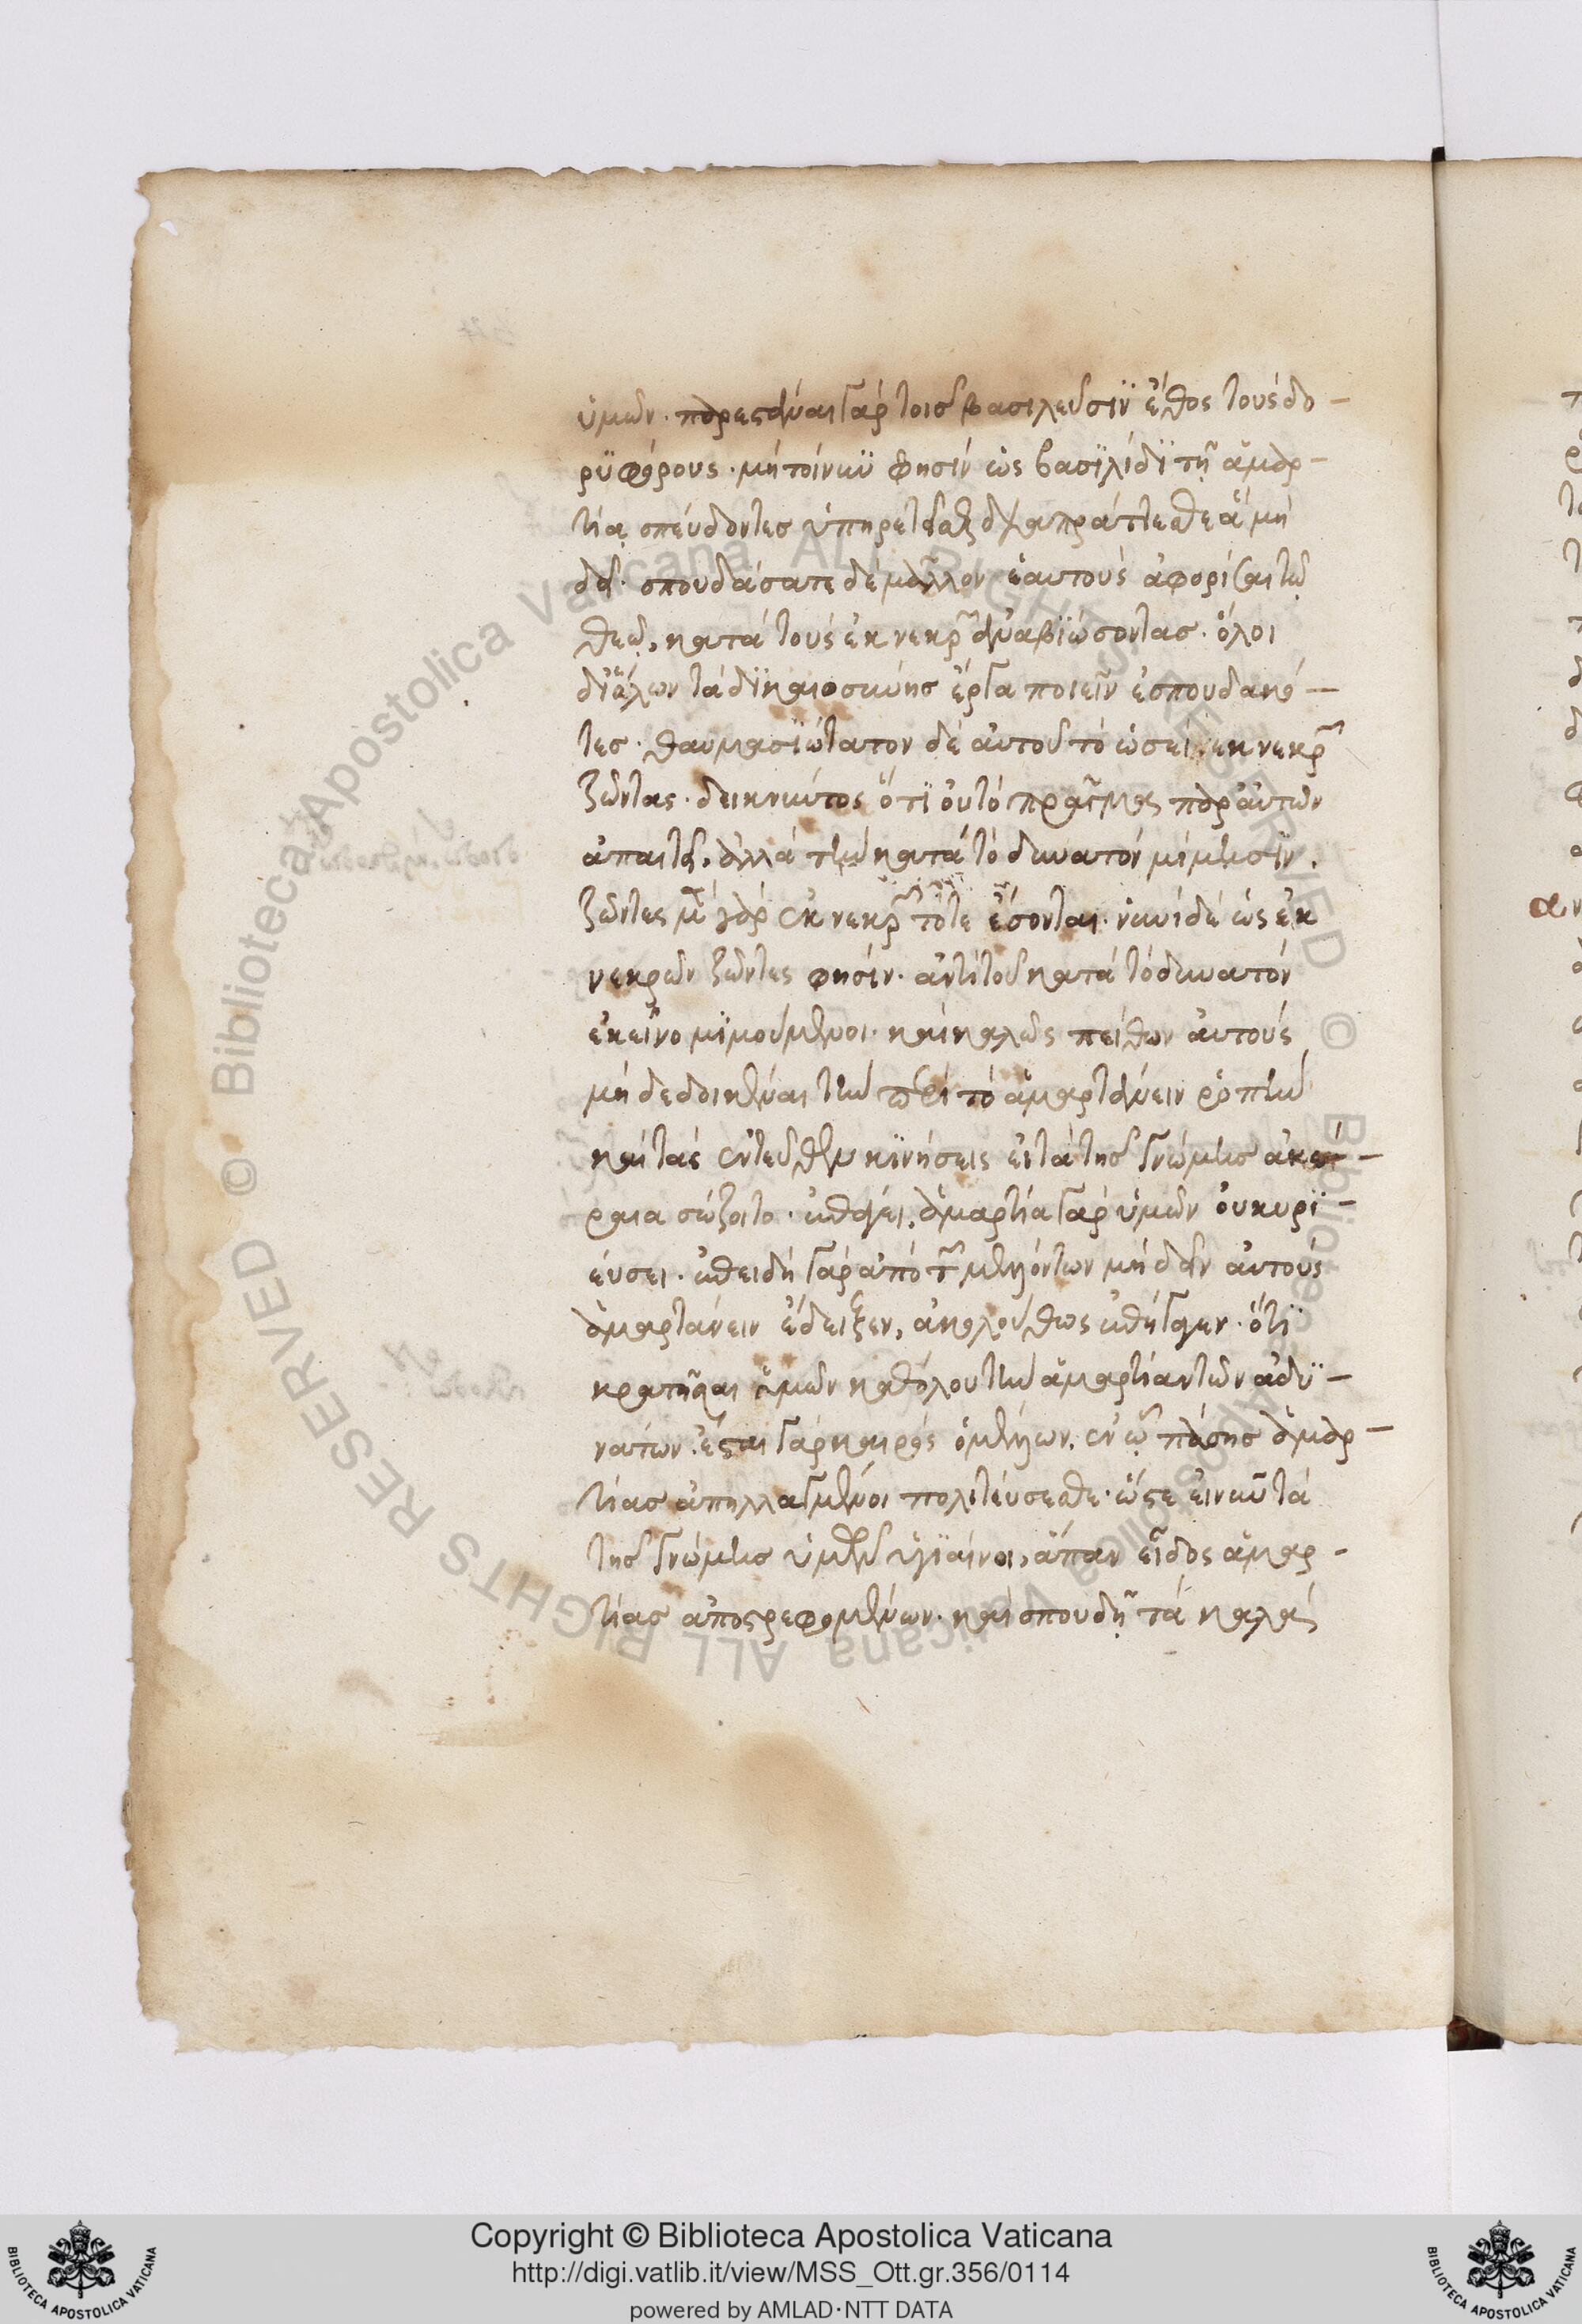 ὑμῶν. παρεστάναι γὰρ τοῖς βασιλεῦσϊν ἔθος τοὺς δο-
ρϋφόρους. μὴ τοίνυν φησὶν ὡς βασϊλίδϊ τῇ ἁμαρ-
τίᾳ σπεύδοντες ὑπηρετεῖσθαι πράττεσθε ἃ μὴ
δεῖ. σπουδάσατε δὲ μᾶλλον ἑαυτοὺς ἀφορίσαι τῷ
θεῷ, κατὰ τοὺς ἐκ νεκρῶν ἀναβϊώσοντας. ὅλοι
δϊόλων τὰ δϊκαιοσύνης ἔργα ποιεῖν ἐσπουδακό-
τες. θαυμασϊώτατον δὲ αὐτοῦ τὸ ὡσεὶ ἐκ νεκρῶν
ζῶντας. δεικνύντος ὅτϊ οὐ τὸ πρᾶγμα παρ αὐτῶν
ἀπαιτεῖ, ἀλλὰ τὴν κατὰ τὸ δυνατὸν μίμησϊν.
ζῶντες μὲν γὰρ ἐκ νεκρῶν τότε ἔσονται. νυνὶ δὲ ὡς ἐκ
νεκρῶν ζῶντες φησίν. ἀντὶ τοῦ κατὰ τὸ δυνατὸν
ἐκεῖνο μϊμούμενοι. καὶ καλῶς πείθων αὐτοὺς
μὴ δεδοικέναι τὴν περὶ τὸ ἁμαρτάνειν ῥοπὴν
καὶ τὰς ἐντεῦθεν κϊνήσεις εἰ τὰ τῆς γνώμης ἀκέ-
ραια σώζοιτο. ἐπάγει, ἁμαρτία γὰρ ὑμῶν οὐ κυρϊ-
εύσει. ἐπειδὴ γὰρ ἀπὸ τῶν μελλόντων μὴ δεῖν αὐτοὺς
ἁμαρτάνειν ἔδειξεν, ἀκολούθως ἐπήγαγεν. ὅτϊ
κρατῆσαι ὑμῶν καθόλου τὴν ἁμαρτίαν τῶν ἀδϋ-
νάτων. ἔσται γὰρ καιρὸς ὁ μέλλων, ἐν ᾧ πάσης ἁμαρ-
τίας ἀπηλλαγμένοι πολιτεύσεσθε. ὥστε εἰ νῦν τὰ
τῆς γνώμης ὑμῖν ὑγϊαίνοι, ἅπαν εἶδος ἁμαρ-
τίας ἀποστρεφομένων. καὶ σπουδῇ τὰ καλὰ
Copyright © Biblioteca Apostolica Vaticana
http://digi.vatlib.it/view/MSS_Ott.gr.356/0114
powered by AMLAD·NTT DATA